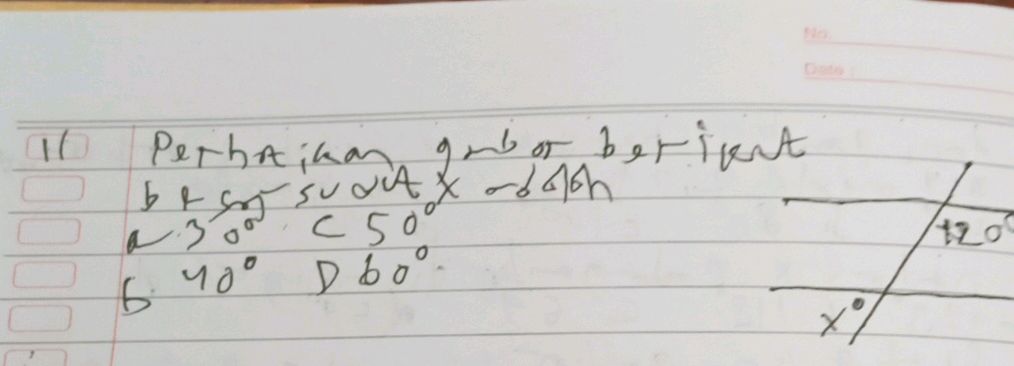 No.
Date :
11 Perhatikan gambar berikut
besar sudut x adalah
a. 30° C 50°
b 40° D 60°
120°
x°